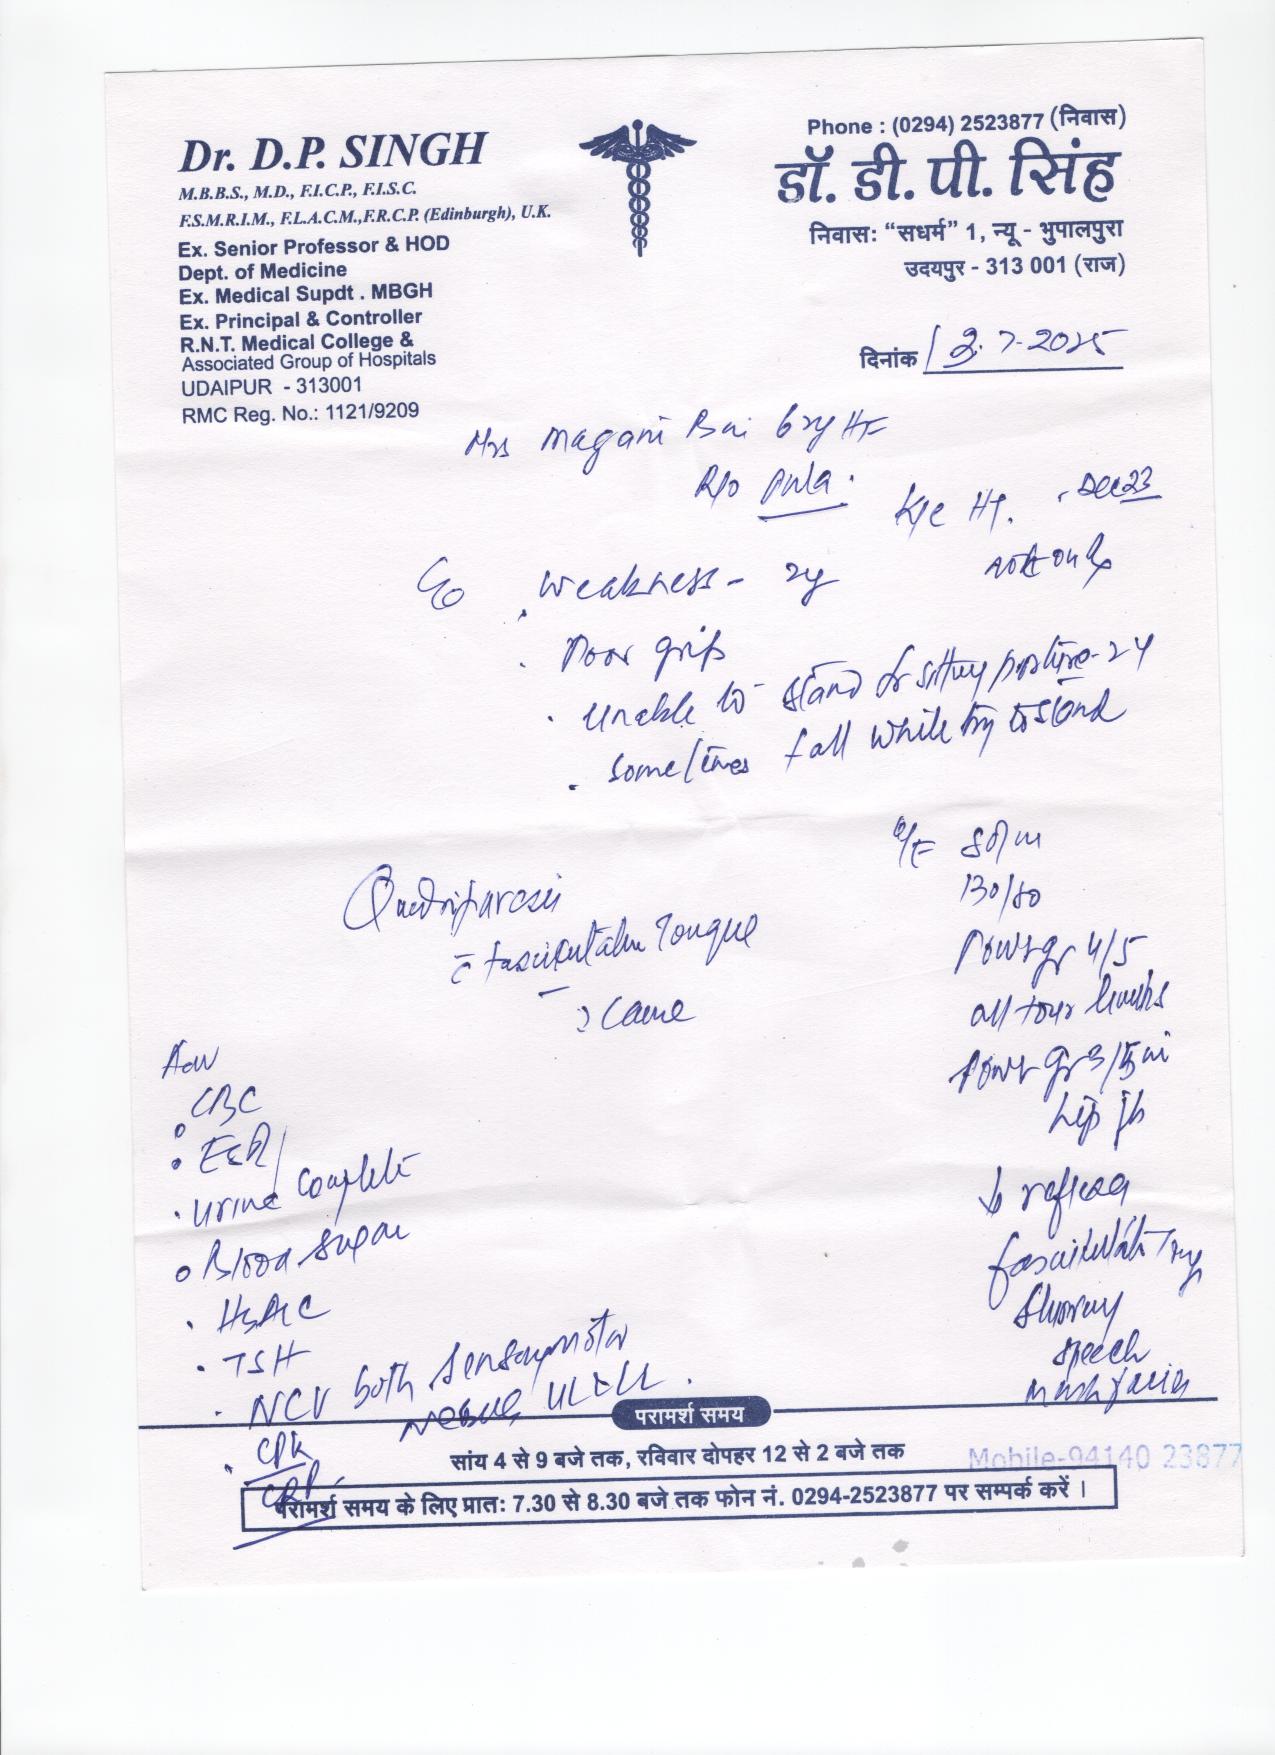 Dr. D.P. SINGH
M.B.B.S., M.D., F.I.C.P., F.I.S.C.
F.S.M.R.I.M., F.L.A.C.M.,F.R.C.P. (Edinburgh), U.K.
Ex. Senior Professor & HOD
Dept. of Medicine
Ex. Medical Supdt . MBGH
Ex. Principal & Controller
R.N.T. Medical College &
Associated Group of Hospitals
UDAIPUR - 313001
RMC Reg. No.: 1121/9209
Phone : (0294) 2523877 (निवास)
डॉ. डी. पी. सिंह
निवास: “सधर्म” 1, न्यू - भुपालपुरा
उदयपुर - 313 001 (राज)
दिनांक 2.7.2025
Mrs Magani Bai
R/o Pula.
K/c HT. Dec 23
not on Rx
C/o . weakness - 2y
. Poor grip
. Unable to stand or sitting posture - 2y
. Sometimes fall while try to stand
O/E
130/80
Power gr 4/5
all four limbs
Power gr 3/5 in
hip jt
↓ reflexes
fasciculati Tong
Slurring
Speech
mask facies
Quadriparesis
c̄ fasciculation Tongue
? Cause
Adv
. CBC
. ESR
. Urine Complete
. Blood sugar
. HbA1C
. TSH
. NCV both Sensory motor
UL & LL.
. CPK
CRP
परामर्श समय
सांय 4 से 9 बजे तक, रविवार दोपहर 12 से 2 बजे तक
Mobile-94140 23877
परामर्श समय के लिए प्रात: 7.30 से 8.30 बजे तक फोन नं. 0294-2523877 पर सम्पर्क करें ।